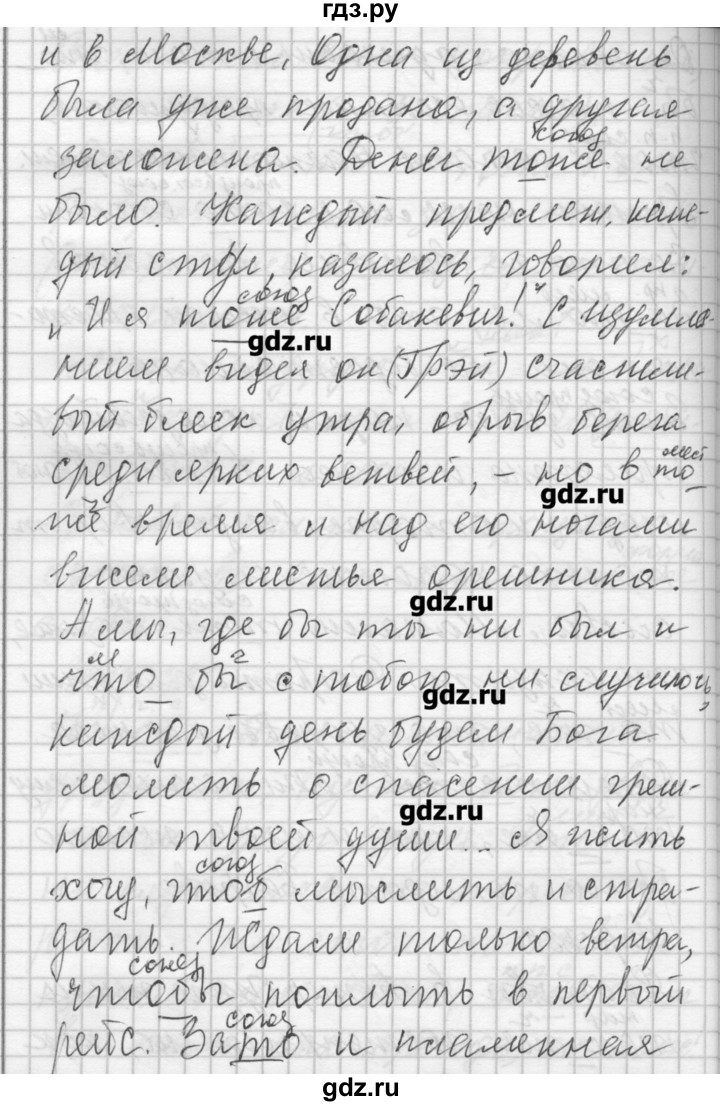 гдз.ру
и в Москве. Одна из деревень
была уже продана, а другая
союз
заложена. Денег тоже не
было. Каждый предмет, каж-
дый стул, казалось, говорил:
союз
"И я тоже Собакевич!" С изумле-
gdz.ru
нием видел он (Грэй) счастли-
вый блеск утра, обрыв берега
мест
среди ярких ветвей, - но в то
gdz.ru
же время и над его ногами
висели листья орешника.
gdz.ru
А мы, где бы ты ни был и
м ч
что бы с тобою ни случилось,
gdz.ru
каждый день будем Бога
молить о спасении греш-
gdz.ru
ной твоей души... Я жить
союз
хочу, чтоб мыслить и стра-
дать. Ждали только ветра,
союз
чтобы поплыть в первый
союз
рейс. Зато и пламенная
gdz.ru